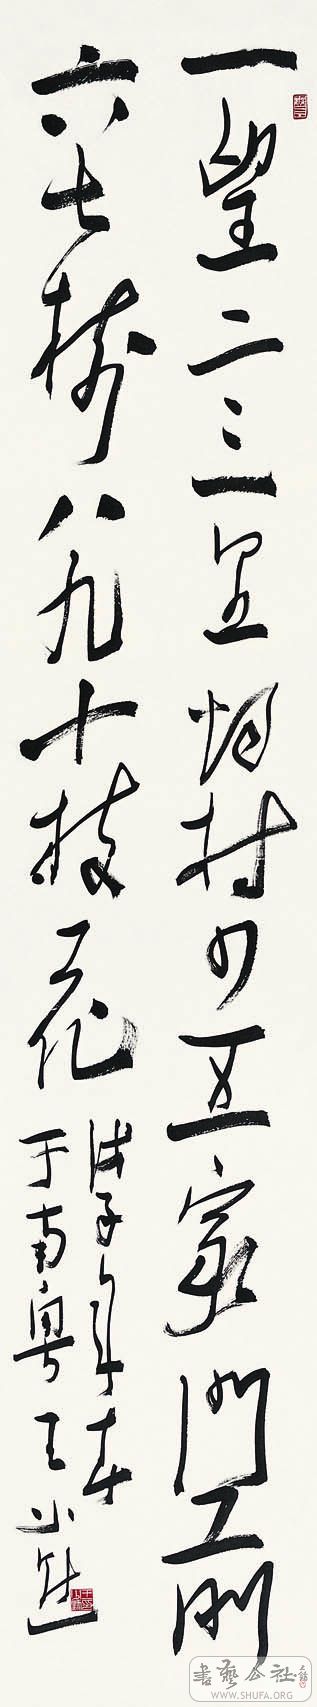 一望二三里烟村四五家門前
六七樹八九十枝花
戊子年春
于南粤王小
書藝公社
WWW.SHUFA.ORG